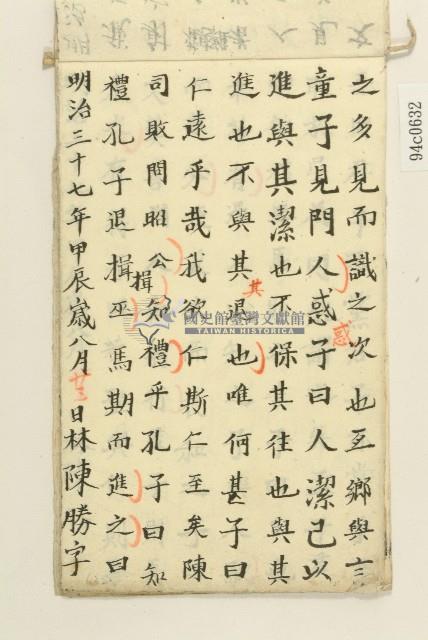 之多見而識之次也互鄉與言
童子見門人惑子曰人潔己以
惑
進與其潔也不保其往也與其
進也不與其退也唯何甚子曰
其
仁遠乎哉我欲仁斯仁至矣陳
司敗問昭公知禮乎孔子曰知
揖
禮孔子退揖巫馬期而進之曰
明治三十七年甲辰歲八月廿三日林陳勝字
94c0632
國史館臺灣文獻館
TAIWAN HISTORICA